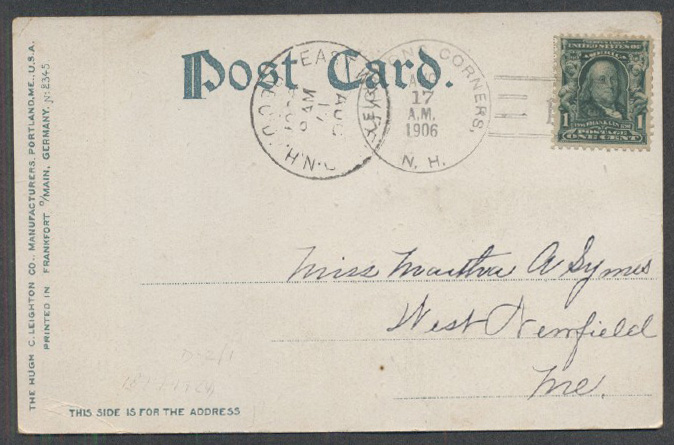 Post Card.
CORNERS,
AUG
17
A.M.
1906
N. H.
EAST
AUG
17
AM
1906
N.H.
UNITED STATES OF
FRANKLIN
1 POSTAGE 1
ONE CENT
Miss Martha A Symes
West Newfield
Me.
THIS SIDE IS FOR THE ADDRESS
THE HUGH C. LEIGHTON CO., MANUFACTURERS, PORTLAND, ME., U.S.A.
PRINTED IN FRANKFORT o/MAIN, GERMANY. No 2345